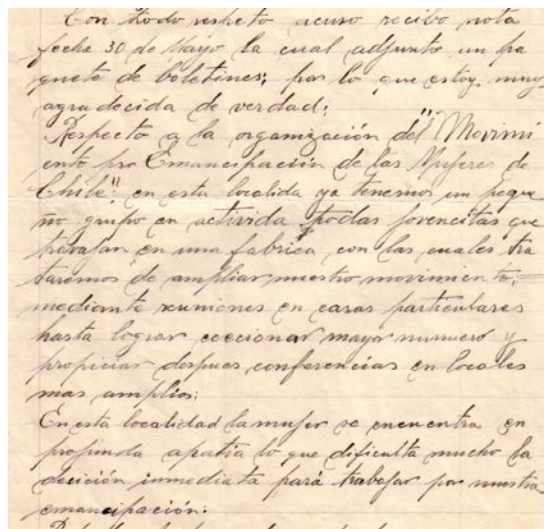 Con todo respeto acuso recibo nota
fecha 30 de Mayo la cual adjunto un pa
quete de boletines; por lo que estoy muy
agradecida de verdad;
Respecto a la organización del "Movimi
ento pro Emancipación de las Mujeres de
Chile" en esta localida ya tenemos un peque
ño grupo en activida todas jovencitas que
travajan en una fabrica con las cuales tra
taremos de ampliar nuestro movimiento;
mediante reuniones en casas particulares
hasta lograr coeccionar mayor numero y
propiciar despues conferencias en locales
mas amplios;
En esta localidad la mujer se encuentra en
profunda apatia lo que dificulta mucho la
decición inmediata pará trabajar por nuestra
emancipación: